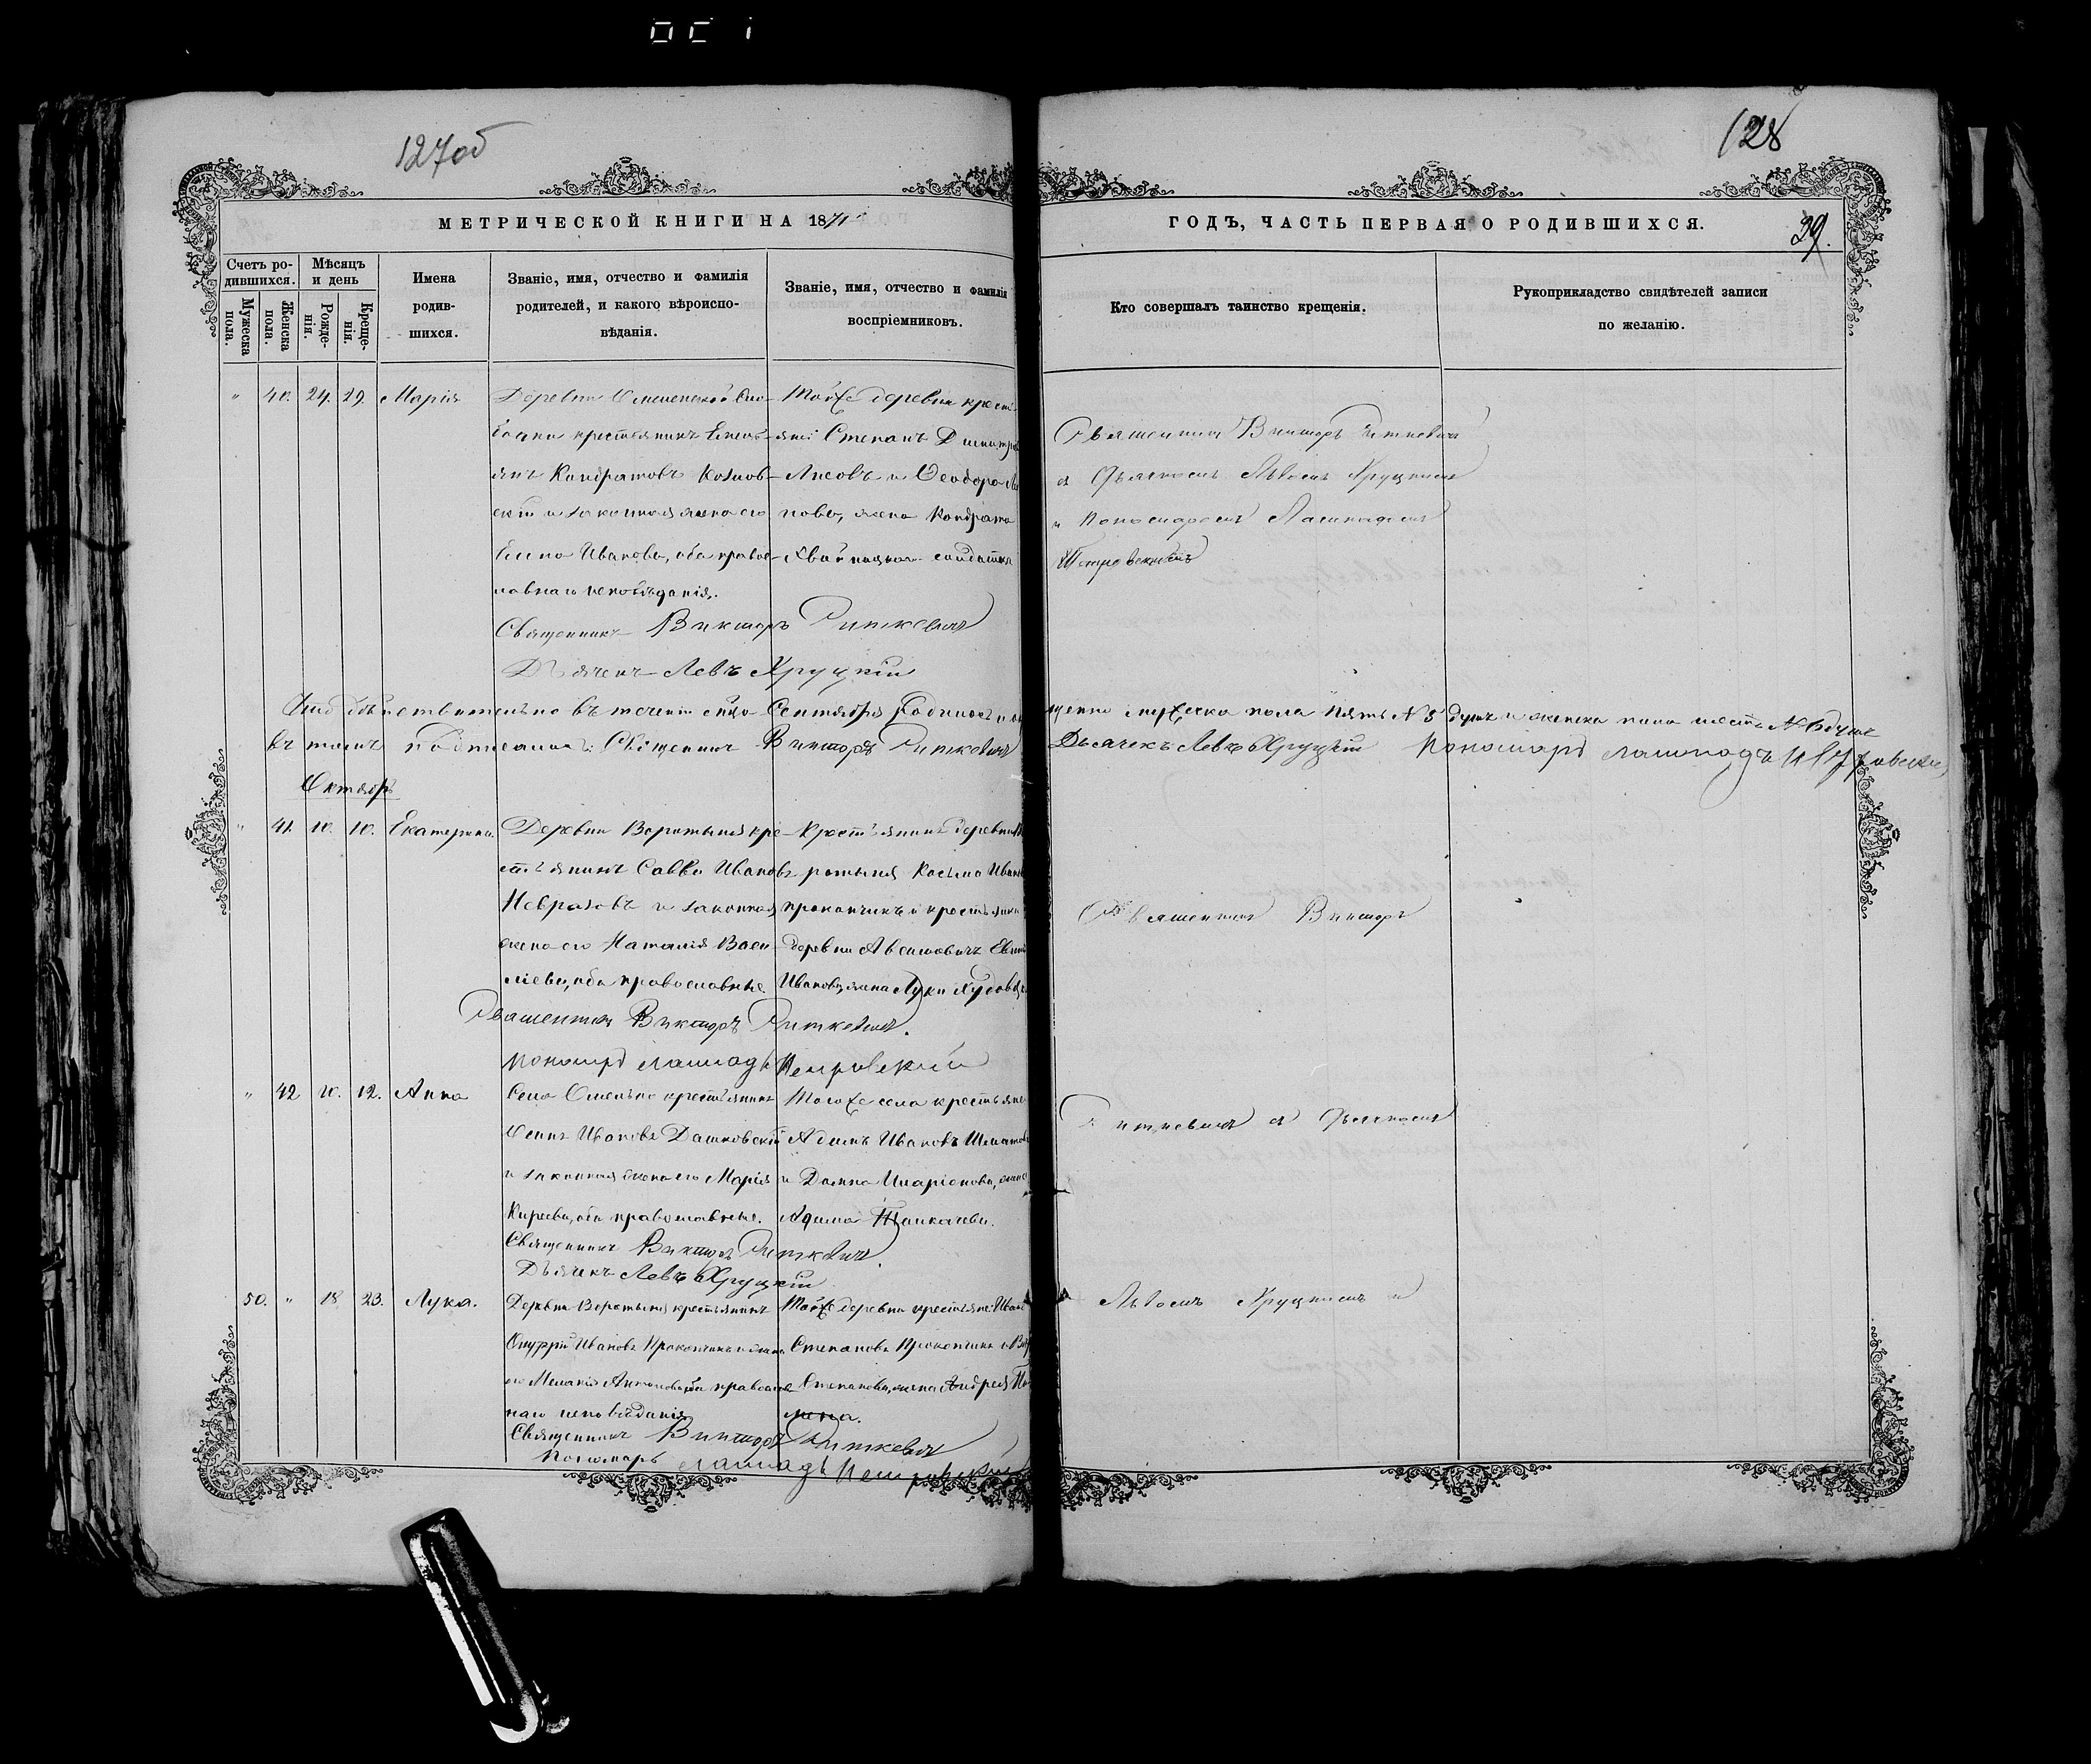 127об
128
МЕТРИЧЕСКОЙ КНИГИ НА 1871
ГОДЪ, ЧАСТЬ ПЕРВАЯ О РОДИВШИХСЯ.
39.
Счетъ ро-
дившихся.
Мужеска
пола.
Женска
пола.
Мѣсяцъ
и день
Рожде-
нія.
Креще-
нія.
Имена
родив-
шихся.
Званіе, имя, отчество и фамилія
родителей, и какого вѣроиспо-
вѣданія.
Званіе, имя, отчество и фамилія
воспріемниковъ.
Кто совершалъ таинство крещенія.
Рукоприкладство свидѣтелей записи
по желанію.
" 40. 24. 29. Марія
Деревни Омеленской Сло-
бодки крестьянинъ
Кондратовъ Козлов-
скій и законная жена его
Елена Иванова, оба правос-
лавнаго исповѣданія.
Священникъ Викторъ Риткевичъ
Дьячекъ Левъ Хруцкій
Тойже деревни крест-
яне: Степанъ Дмитр
Лисовъ и Ѳеодора
нова, жена Кондрата
солдатка
Священникъ Викторъ Риткевичъ
съ Дьячкомъ Львомъ Хруцкимъ
и Пономаремъ
Петровскимъ
Что дѣйствительно въ теченіи сего Сентября родилось и
щенно мужеска пола пять № 5 душъ и женска пола шесть № 6 душъ
въ томъ подписались: Священникъ Викторъ Риткевичъ
Дьячекъ Левъ Хруцкій Пономарь Петровскій
Октябрь
" 41. 10. 10. Екатерина.
Деревни Воротыня кре-
стьянинъ Савва Ивановъ
Невразовъ и законная
жена его Наталія Васи-
ліева, оба православные.
Священникъ Викторъ Риткевичъ.
Пономарь Петровскій
Крестьянинъ деревни
ротыня Косьма Иван
Прокопчикъ и крестьянка
деревни
Иванова, жена Луки
Священникъ Викторъ
" 42 10. 12. Анна
Села Омельно крестьянинъ
Ивановъ Дашковскій
и законная жена его Марія
Киреева, оба православные.
Священникъ Викторъ Риткевичъ.
Дьячекъ Левъ Хруцкій
Тогоже села крестьяне
Адамъ Ивановъ
и Домна Иларіонова, жена
Адама
Риткевичъ съ Дьячкомъ
50. " 18 23. Лука.
Деревни Воротыня крестьянинъ
Онуфрій Ивановъ Прокопчикъ и жена
его Меланія Антонова, оба правосла
наго исповѣданія
Священникъ Викторъ Риткевичъ
Пономарь Петровскій
Тойже деревни крестьяне: Иванъ
Степановъ Прокопчикъ и
Степанова, жена Андрея
Львомъ Хруцкимъ и